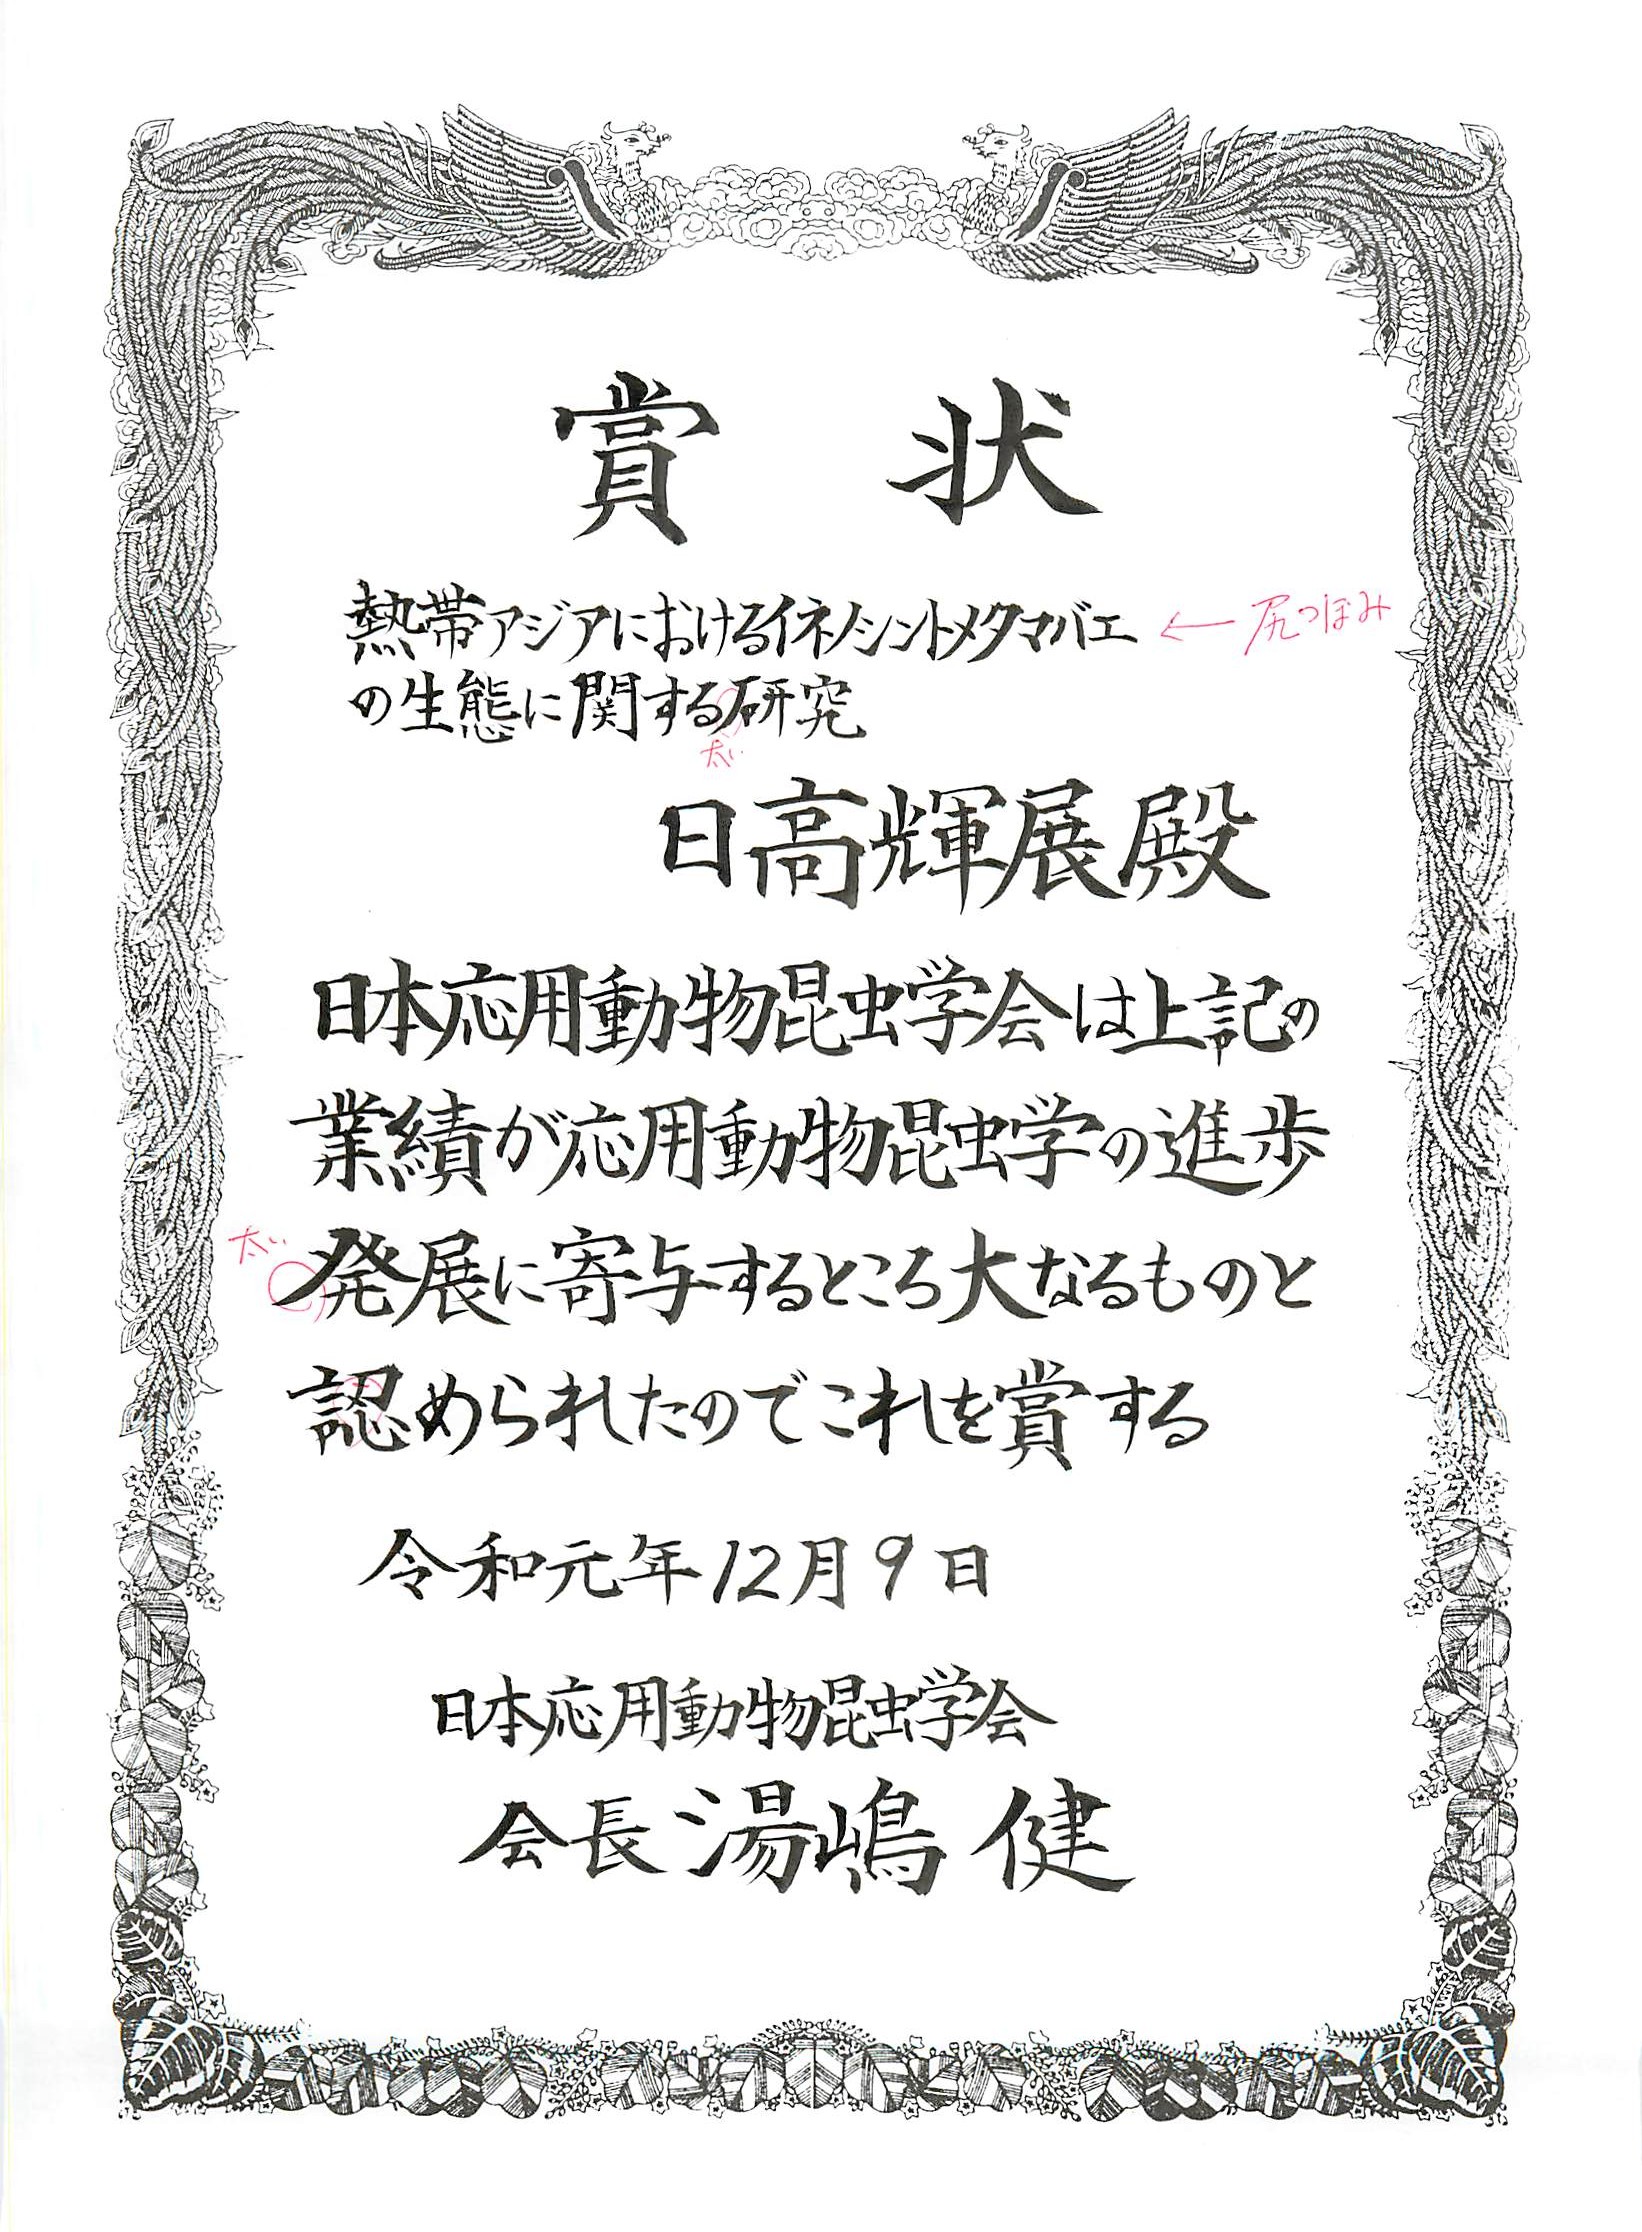 賞状
熱帯アジアにおけるイネノシントメタマバエ ← 尻つぼみ
の生態に関する研究
太い
日高輝展殿
日本応用動物昆虫学会は上記の
業績が応用動物昆虫学の進歩
太い
発展に寄与するところ大なるものと
認められたのでこれを賞する
令和元年12月9日
日本応用動物昆虫学会
会長 湯嶋 健